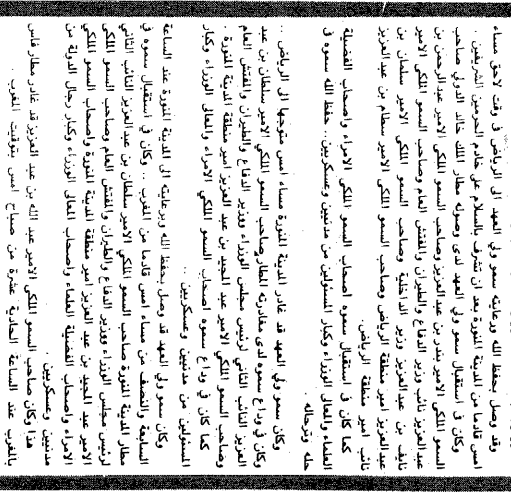 وقد وصل بحفظ الله ورعايته سمو ولي العهد الى الرياض في وقت لاحق مساء
امس قادما من المدينة المنورة بعد ان تشرف بالسلام على خادم الحرمين الشريفين .
وكان في استقبال سمو ولي العهد لدى وصوله مطار الملك خالد الدولي صاحب
السمو الملكي الامير بندر بن عبدالعزيز وصاحب السمو الملكي الامير عبدالرحمن بن
عبدالعزيز نائب وزير الدفاع والطيران والمفتش العام وصاحب السمو الملكي الامير
نايف بن عبدالعزيز وزير الداخلية وصاحب السمو الملكي الامير سلمان بن
عبدالعزيز امير منطقة الرياض وصاحب السمو الملكي الامير سطام بن عبدالعزيز
نائب امير منطقة الرياض.
كما كان في استقبال سموه اصحاب السمو الملكي الامراء واصحاب الفضيلة
العلماء والمعالي الوزراء وكبار المسئولين من مدنيين وعسكريين.. حفظ الله سموه في
حله وترحاله .
وكان سمو ولي العهد قد غادر المدينة المنورة مساء امس متوجها الى الرياض ..
وكان في وداع سموه لدى مغادرته المطار صاحب السمو الملكي الامير سلطان بن عبد
العزيز النائب الثاني لرئيس مجلس الوزراء ووزير الدفاع والطيران والمفتش العام
وصاحب السمو الملكي الامير عبد المجيد بن عبد العزيز امير منطقة المدينة المنورة .
كما كان في وداع سموه اصحاب السمو الملكي الامراء والمعالي الوزراء وكبار
المسئولين من مدنيين وعسكريين ..
وكان سمو ولي العهد قد وصل بحفظ الله ورعايته الى المدينة المنورة عند الساعة
السابعة والنصف من مساء امس قادما من المغرب .. وكان في استقبال سموه في
مطار المدينة المنورة صاحب السمو الملكي الامير سلطان بن عبدالعزيز النائب الثاني
لرئيس مجلس الوزراء ووزير الدفاع والطيران والمفتش العام وصاحب السمو الملكي
الامير عبد المجيد بن عبد العزيز امير منطقة المدينة المنورة واصحاب السمو الملكي
الامراء واصحاب الفضيلة العلماء واصحاب المعالي الوزراء وكبار رجال الدولة من
مدنيين وعسكريين .
هذا وكان صاحب السمو الملكي الامير عبد الله بن عبد العزيز قد غادر مطار فاس
بالمغرب عند الساعة الحادية عشرة من صباح امس بتوقيت المغرب .